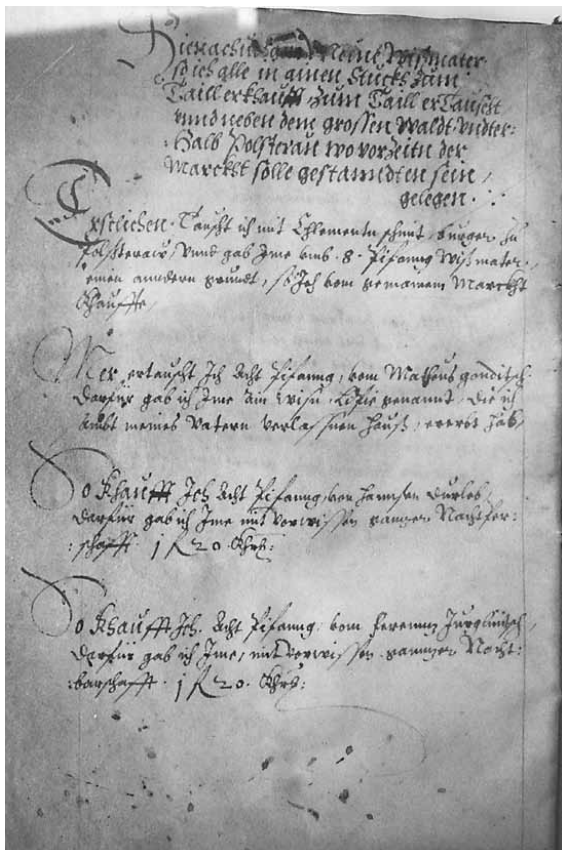 Hienach sein meine Wißmater
so ich alle in ainen Stuckh zum
Taill erkhaufft, zum Taill erTauscht
vnnd neben dem grossen Waldt vndter:
:halb Polsterau wo vor Zeitn der
Marckht solle gestanndten sein,
gelegen.
Erstlichen. Tauscht ich mit Chlementn Schmit, burger zu
Polssterau, Vnnd gab Ime vmb .8. Pifanng Wißmater,
einen anndern grundt, so Ich vom gemainen Marckht
Khauffte,
Mer ertauscht Ich Acht Pifanng, vom Matheus
Darfür gab ich Ime ain wisn, genannt, die ich
Ambt meines Vatern verlassnen hauß, ererbt hab,
So Khaufft Ich Acht Pifanng, von Hannsen
Darfür gab ich Ime mit vorwissen ganzer Nachtper:
:schafft. 1 f 20. Khrh:
So Khaufft Ich. Acht Pifanng. vom
Darfür gab ich Ime, mit vorwissen. gannzer Nacht:
:barschafft. 1 f 20. Khrh: